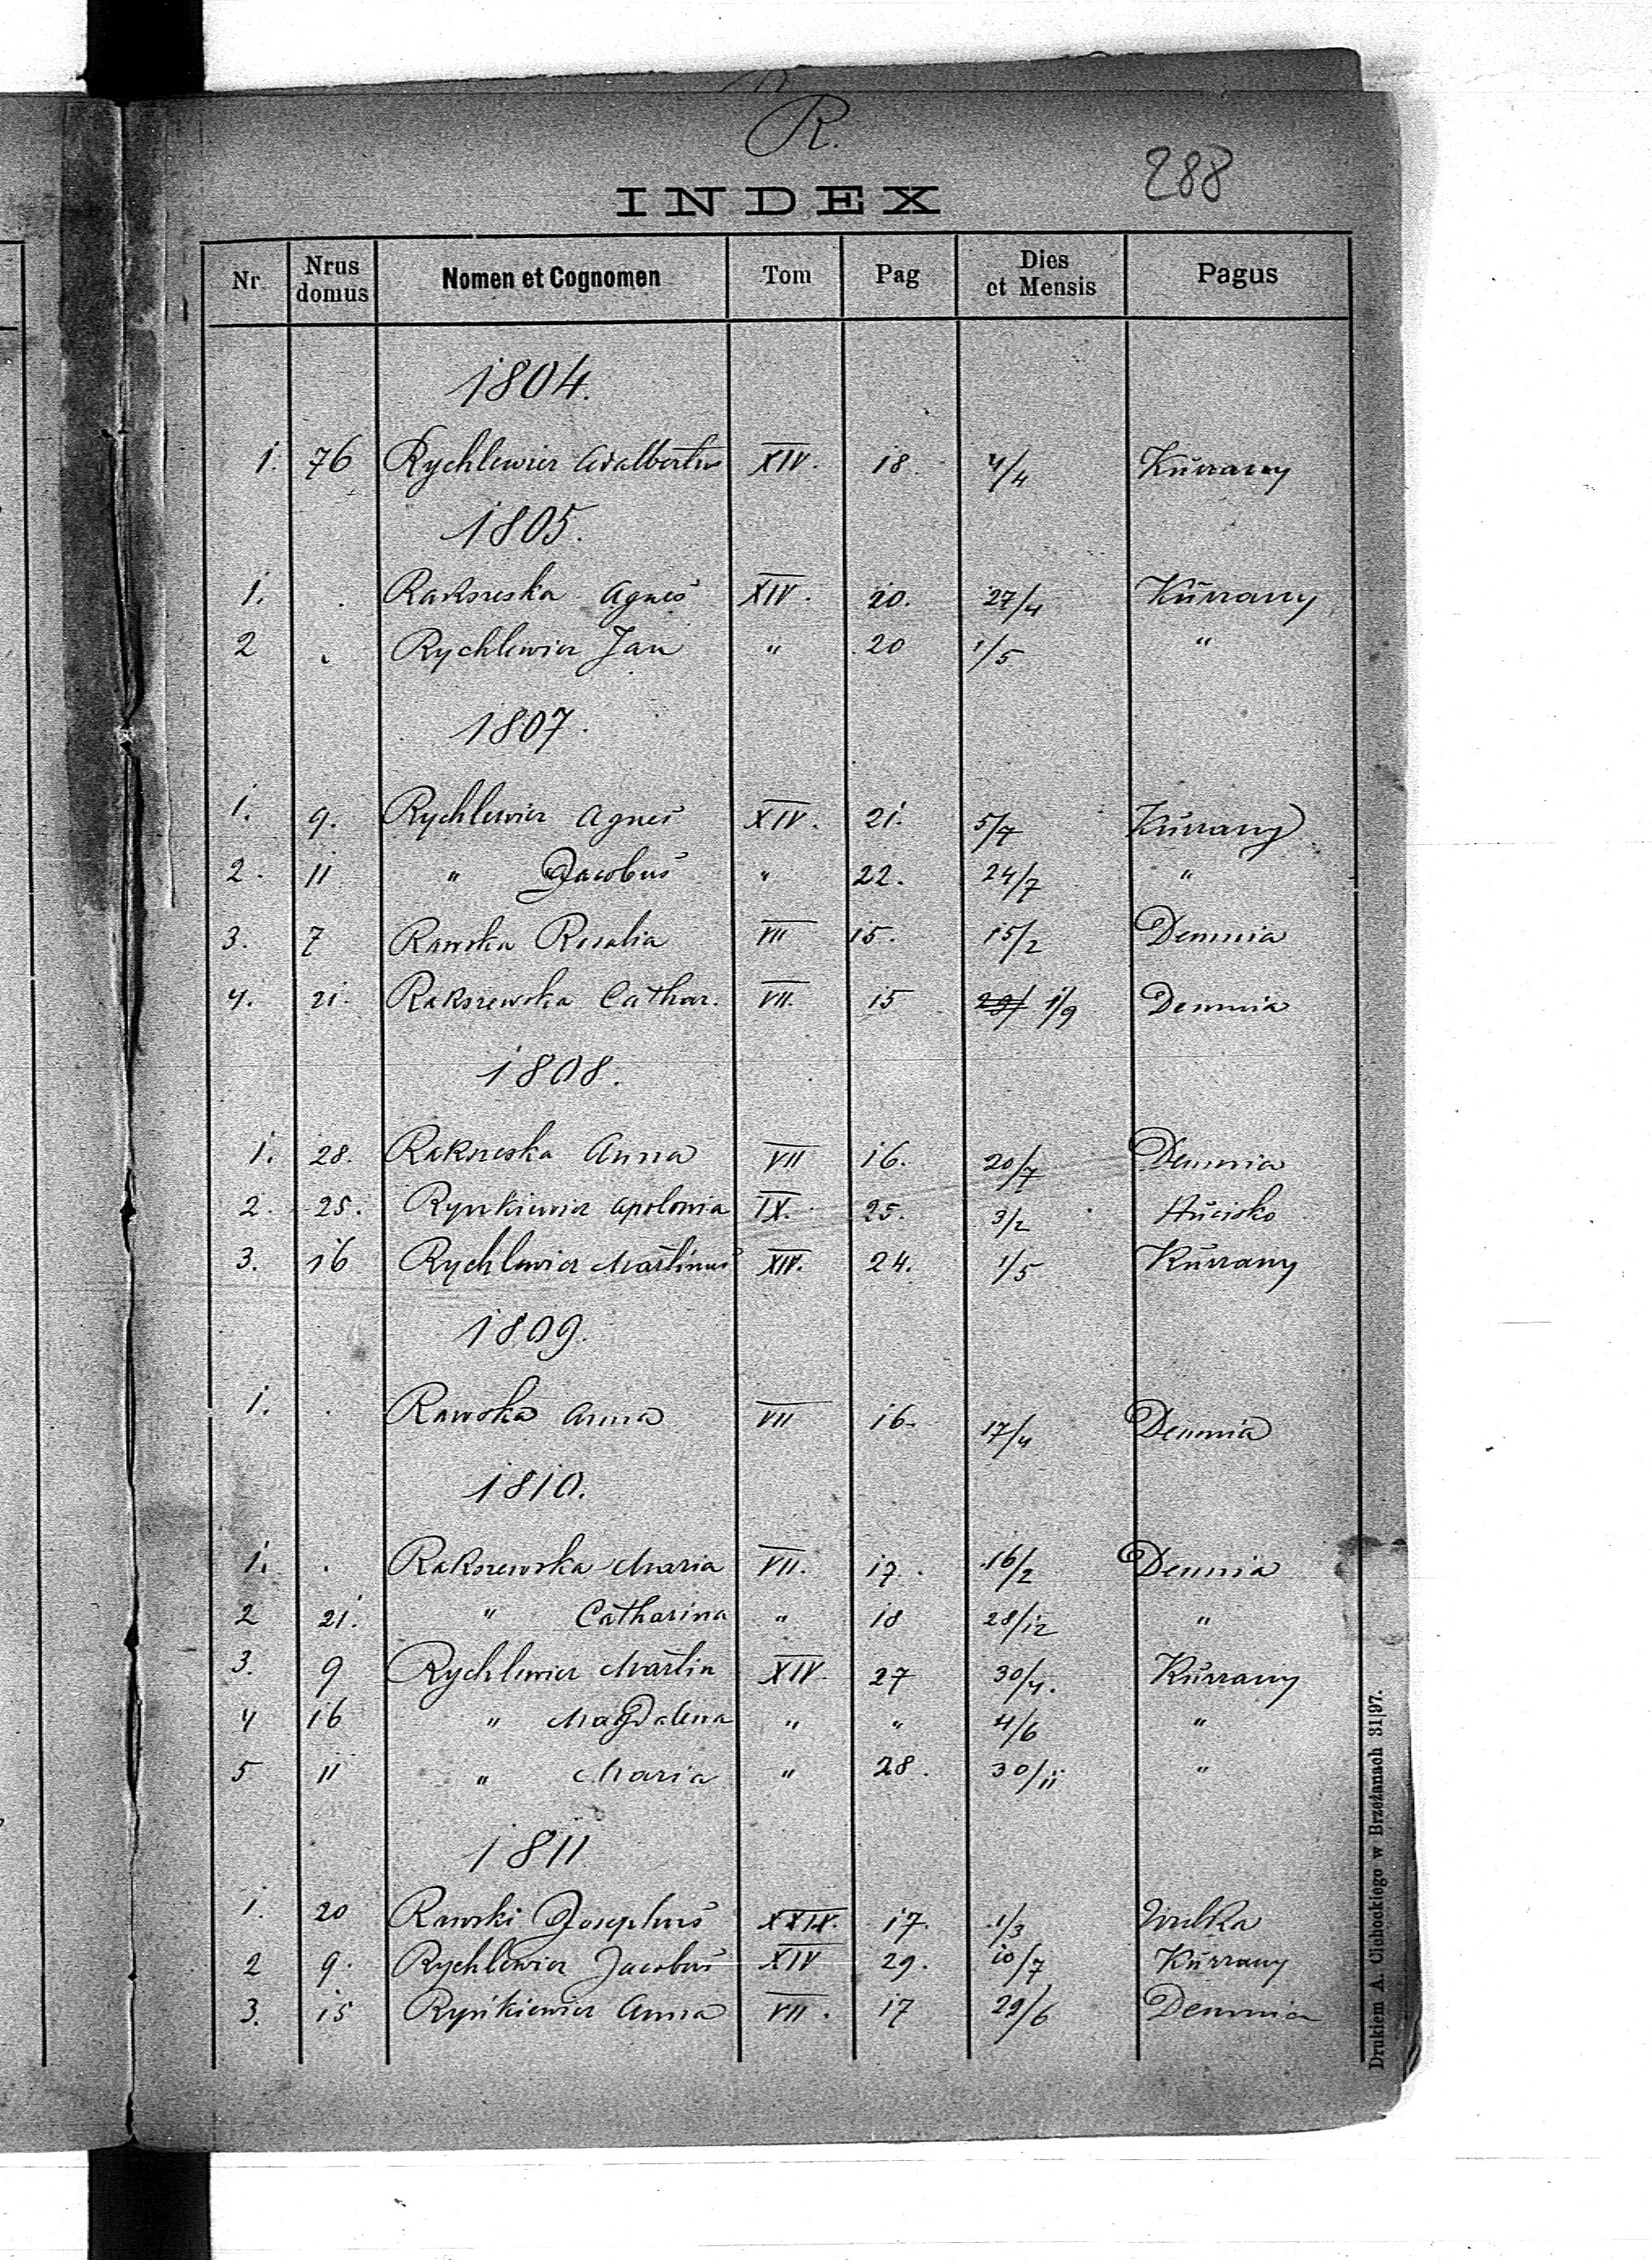 R.
288
INDEX
Nr Nrus domus Nomen et Cognomen Tom Pag Dies et Mensis Pagus
1804.
1. 76 Rychlewicz Adalbertus XIV. 18. 4/4 Kurzany
1805.
1. . Rakszeska Agnes XIV. 20. 27/4 Kurzany
2 . Rychlewicz Jan " 20 1/5 "
1807.
1. 9. Rychlewicz Agnes XIV. 21. 5/7 Kurzany
2. 11 " Jacobus " 22. 24/7 "
3. 7 Rawska Rosalia VII 15. 15/2 Demnia
4. 21. Rakszewska Cathar. VII. 15 1/9 Demnia
1808.
1. 28. Rakszeska Anna VII 16. 20/7 Demnia
2. 25. Rynkiewicz Apolonia IX. 25. 3/2 Hucisko
3. 16 Rychlewicz Martinus XIV. 24. 1/5 Kurzany
1809.
1. . Rawska Anna VII 16. 17/4 Demnia
1810.
1. . Rakszewska Maria VII. 17. 16/2 Demnia
2 21. " Catharina " 18 28/12 "
3. 9 Rychlewicz Martin XIV. 27 30/4. Kurzany
4 16 " Magdalena " " 4/6 "
5 11 " Maria " 28. 30/11 "
1811
1. 20 Rawski Josephus XXIX. 17. 1/3 Wulka
2 9. Rychlewicz Jacobus XIV 29. 10/7 Kurzany
3. 15 Rynkiewicz Anna VII. 17 29/6 Demnia
Drukiem A. Cichockiego w Brzeżanach 31|97.